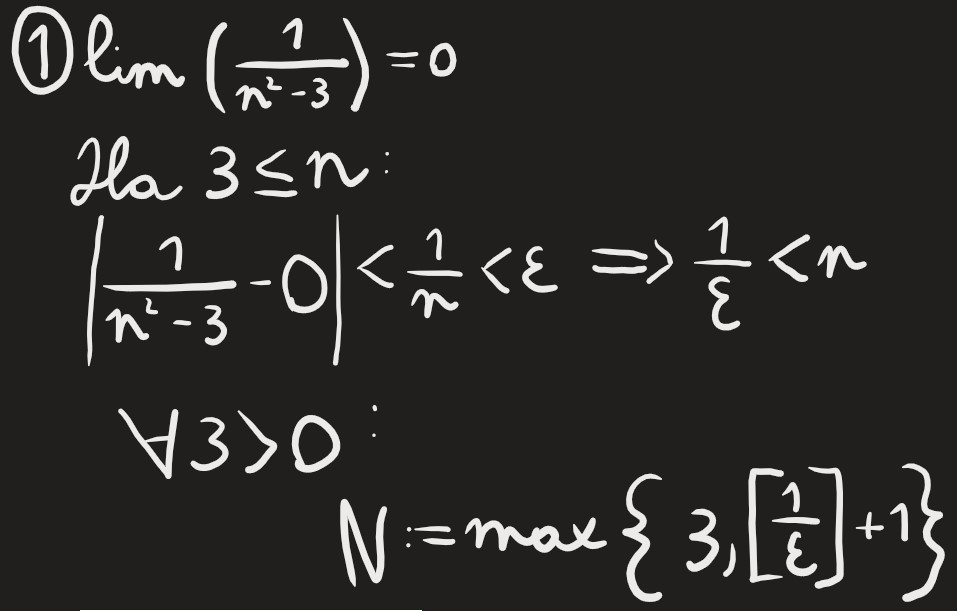 ① lim (1/(n²-3)) = 0
Ha 3 ≤ n:
|1/(n²-3) - 0| < 1/n < ε ⇒ 1/ε < n
∀3>0:
N := max { 3, [1/ε] + 1 }